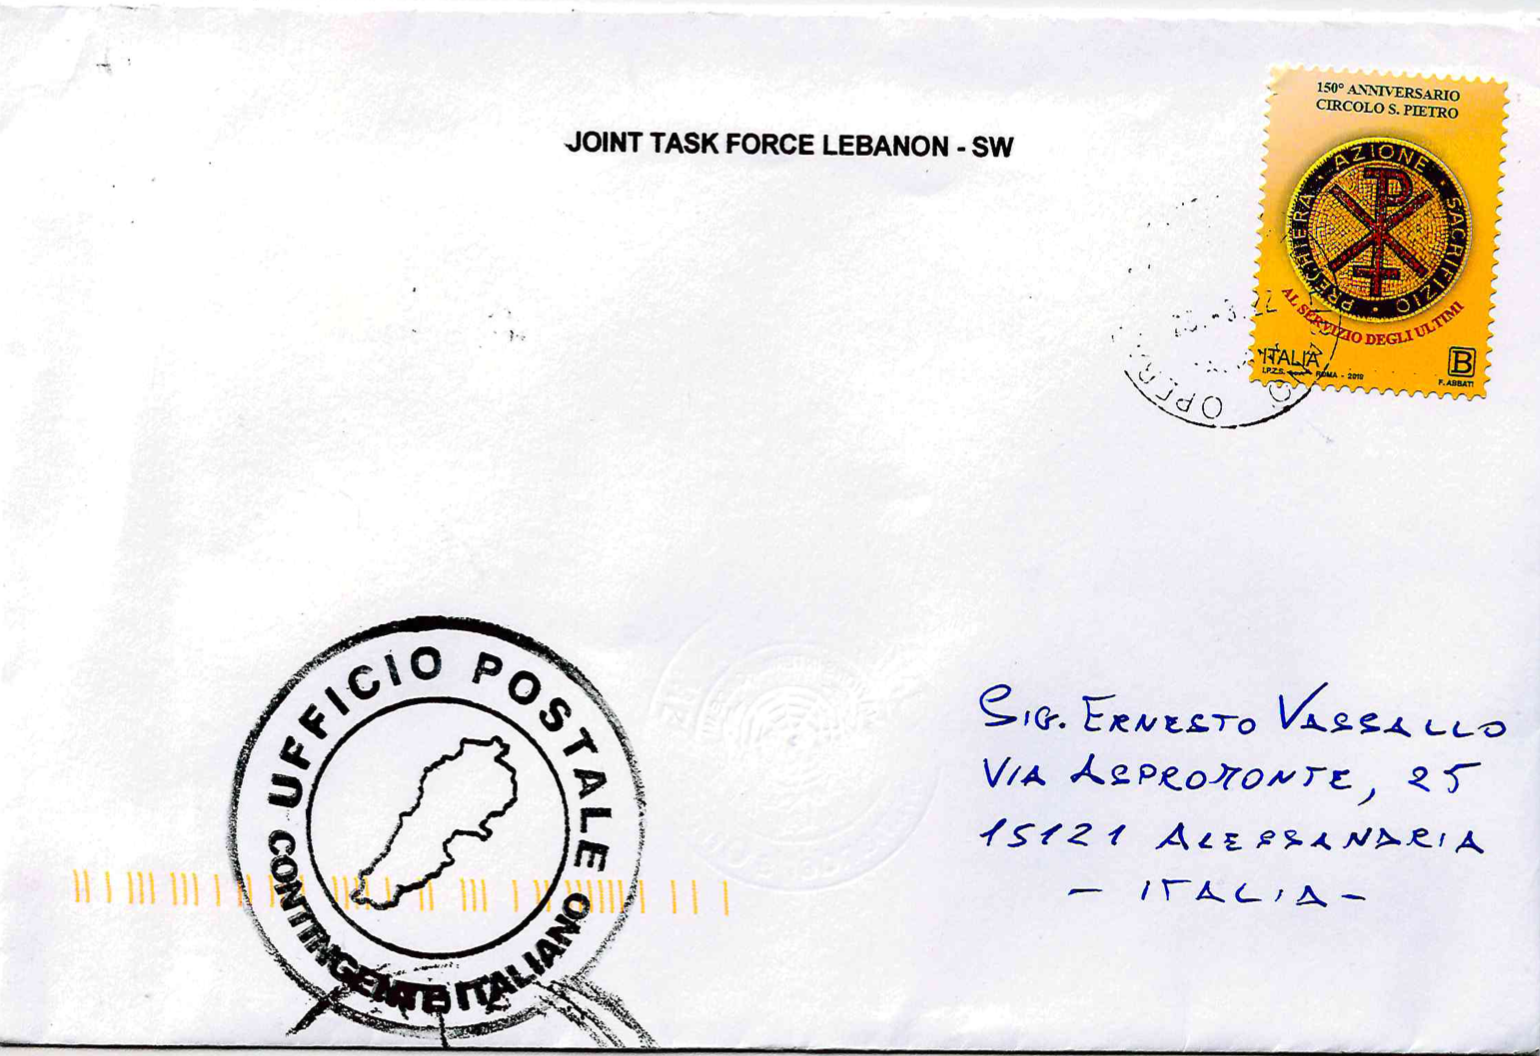 JOINT TASK FORCE LEBANON - SW
150° ANNIVERSARIO
CIRCOLO S. PIETRO
PREGHIERA · AZIONE · SACRIFIZIO ·
AL SERVIZIO DEGLI ULTIMI
ITALIA
B
I.P.Z.S. ROMA - 2019
F. ABBATI
UFFICIO POSTALE
CONTINGENTE ITALIANO
SIG. ERNESTO VASSALLO
VIA ASPROMONTE, 25
15121 ALESSANDRIA
- ITALIA -